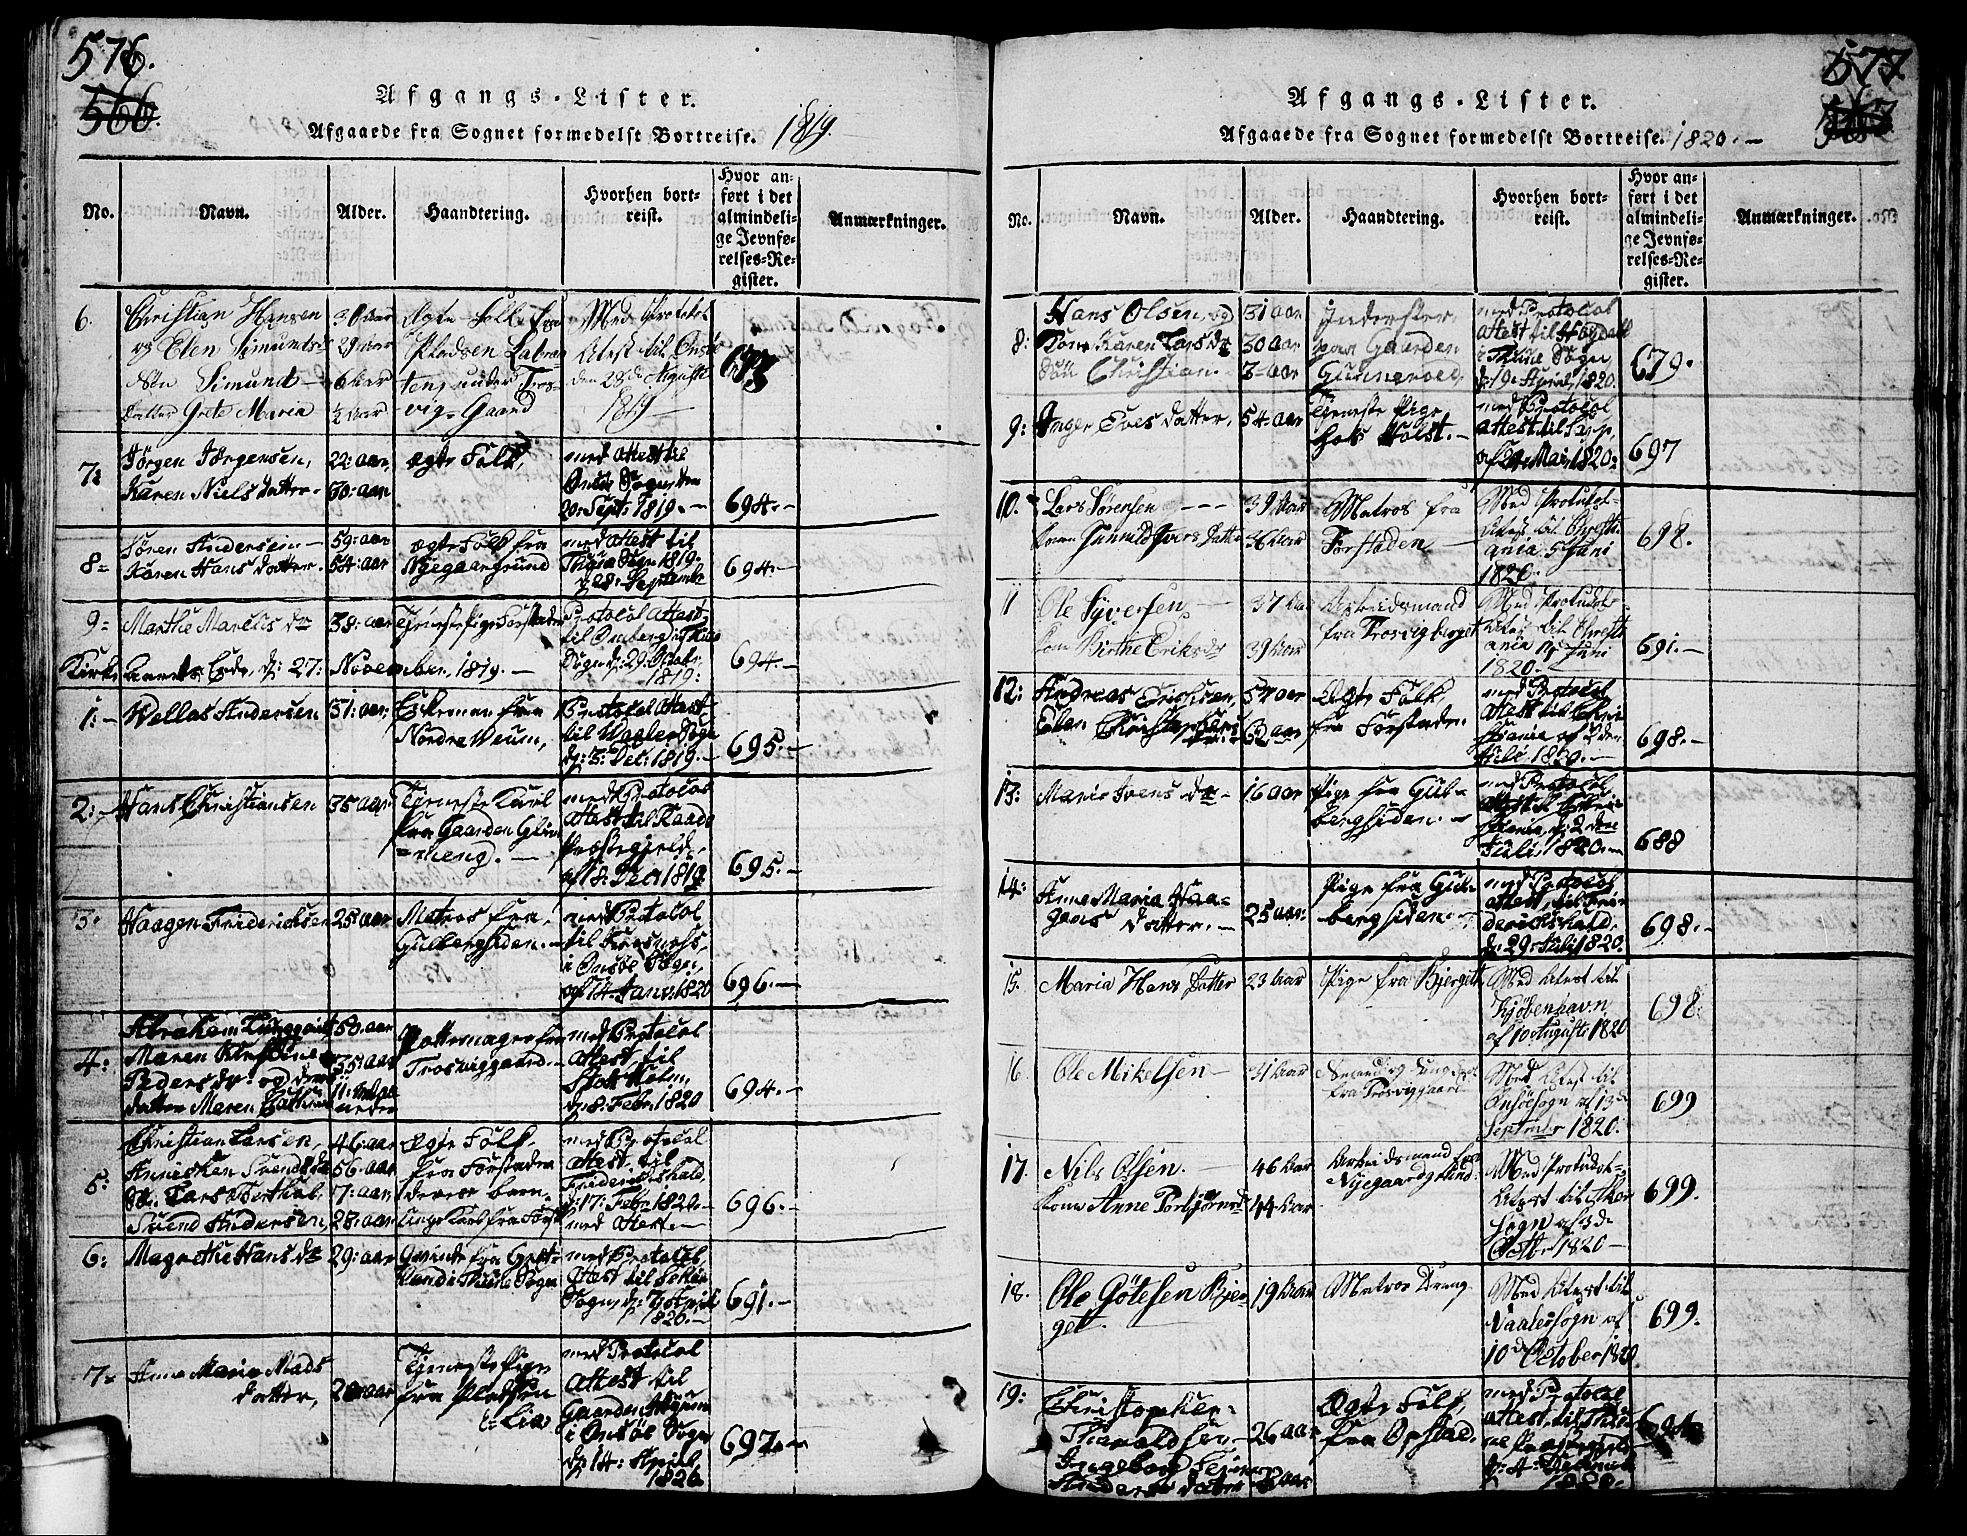 576.
566.
Afgangs-Lister.
Afgaaede fra Sognet formedelst Bortreise. 1819.
No.
Navn.
Alder.
Haandtering.
Hvorhen bort-
reist.
Hvor an-
ført i det
almindeli-
ge Jevnfø-
relses-Re-
gister.
Anmærkninger.
6.
Christian Hansen
og Elen Simunds
Søn Simund
Datter Grete Maria
29 aar
6 aar
½ aar
Ægte Folk fra
Pladsen Labra
teng under Tros-
vig-Gaard
Med Protokol
Attest til Onsø
den 28de August
1819
7:
Jörgen Jörgensen,
Karen Niels datter
22: aar,
30: aar
ægte Folk,
med Attest til
Onsøe Sogn, den
20: Sept: 1819.
694.
8
Sören Andersen
Karen Hans datter.
59: aar
54: aar
ægte Folk fra
Nyegaargrund
med Attest til
Thune Sogn 1819:
28: Septembr
694.
9
Marthe Marcus dr
38: aar
Tjeneste Pige Forstaden
Protocol Attest,
til
Sogn d: 29: Octobr.
1819:
694.
Kirke Aarets Ende, d: 27: November, 1819.
1:
Wellas Andersen
31: aar,
fra
Nordre Weum,
Protocol Attest
til Waaler Sogn
d: 3: Dec: 1819.
695.
2:
Hans Christiansen
35 aar
Tjeneste Karl
fra Gaarden Glim
meng.
med Protocol
Attest til Raade
Præstegjeld,
af 18: Dec: 1819
695.
3
Haagen Fridrichsen
25 aar
Matros fra
Gulbergsiden.
med Protocol
til
i Onsøe Sogn,
af 14. Janr: 1820
696.
4:
Abraham
Maren Kirstine
Peders dr: og deres
datter Maren Cathrine
50: aar
35: aar
11: maa-
neder
Pottemager fra
Trosviggaard.
med Protocol
Attest til
Stokholm,
d: 8: Febr: 1820
694.
5:
Christian Larsen,
Annichen Svends dr
Sön Lars Berthel
Suend Andersen,
46: aar
56: aar
7: aar
28: aar
ægte Folk
fra Forstaden
deres barn
Unge Karl fra Forst
med Protocol
Attest, til
Friderichshald,
d: 17: Febr: 1820.
med Attest
696.
6:
Magrethe Hans dr
29: aar
Qvinde fra
Thune Sogn
med Protocol
Attest til
Sogn, d: 7 April
1820.
691.
7
Anne Maria Mads
datter,
28 aar
Tjeneste Pige
fra Pladsen
Lia
med Protocol
Attest til
Gaarden
i Onsöe Sogn
d: 14: April
1820
697.
577.
Afgangs-Lister.
Afgaaede fra Sognet formedelst Bortreise. 1820.
No.
Navn.
Alder.
Haandtering.
Hvorhen bort-
reist.
Hvor an-
ført i det
almindeli-
ge Jevnfø-
relses-Re-
gister.
Anmærkninger.
8:
Hans Olsen, og
Kone Karen Lars dr
Sön Christian
31 aar
30 aar
7 aar
Inderster
paa Gaarden
Gunnerød,
med Protocol
Attest til
i Thune Sogn
d: 19: April, 1820.
679.
9:
Inger Eves datter,
54 aar
Tjeneste Pige
hos Holst.
med Protocol
Attest til Sarp,
af 29. Mai, 1820:
697
10.
Lars Sörensen
Konen Gunnild Ivers Datter
39 Aar
36 Aar
Matros fra
Forstaden
Med Protukol-
Attest til Christi-
ania, 5 Juni
1820.
698.
11
Ole Syversen,
Kone Birthe Eriks dr
37 Aar
39 Aar
Arbeidsmand
fra Trosvigberget
Med Protukol-
Attest til Christi-
ania 19 Juni
1820.
691.
12:
Andreas Erichsen,
Elen Christophers
dr:
57 aar
62 aar
Ægte Folk
fra Forstaden.
med Protocol
Attest til Chri-
stiania af 2 den
Juli 1820.
698.
13:
Marie Ivens dr
16 aar
Pige fra Gul-
bergsiden.
med Protocol
Attest til Chri-
stiania, d: 2 den
Juli, 1820.
688
14:
Anne Maria Haa-
gens datter.
25 aar:
Pige fra Gul-
bergsiden.
med Protocol
Attest, til Fri-
derichshald,
d: 29: Juli 1820.
698.
15.
Maria Hans Datter
23 Aar
Pige fra Bjerget
Med Attest til
Kjöbenhavn
af 10 Augusti 1820
698.
16.
Ole Mikelsen
31 Aar
fra Trosviggaard
Med Attest til
Onsöesogn af 13de
Septmer 1820.
699
17.
Nils Olsen.
Kone Anne Torbjörns dr
46 Aar
44 Aar
Arbeidsmand fra
Nyegaardgrund.
Med Protukol-
Attest til Aker
Sogn af 3de
Octbr 1820
699.
18.
Ole Götesen Bjer-
get.
19 Aar
Matros Dreng
Med Attest til
Vaalersogn af
10de October 1820.
699.
19:
Christopher
Thorvaldsen
Ingeborg
Anders datter
26 aar
Ægte Folk,
fra Opstad.
med Protocol
Attest, til Thu-
ne Præstegjeld
d: 4:
1820.